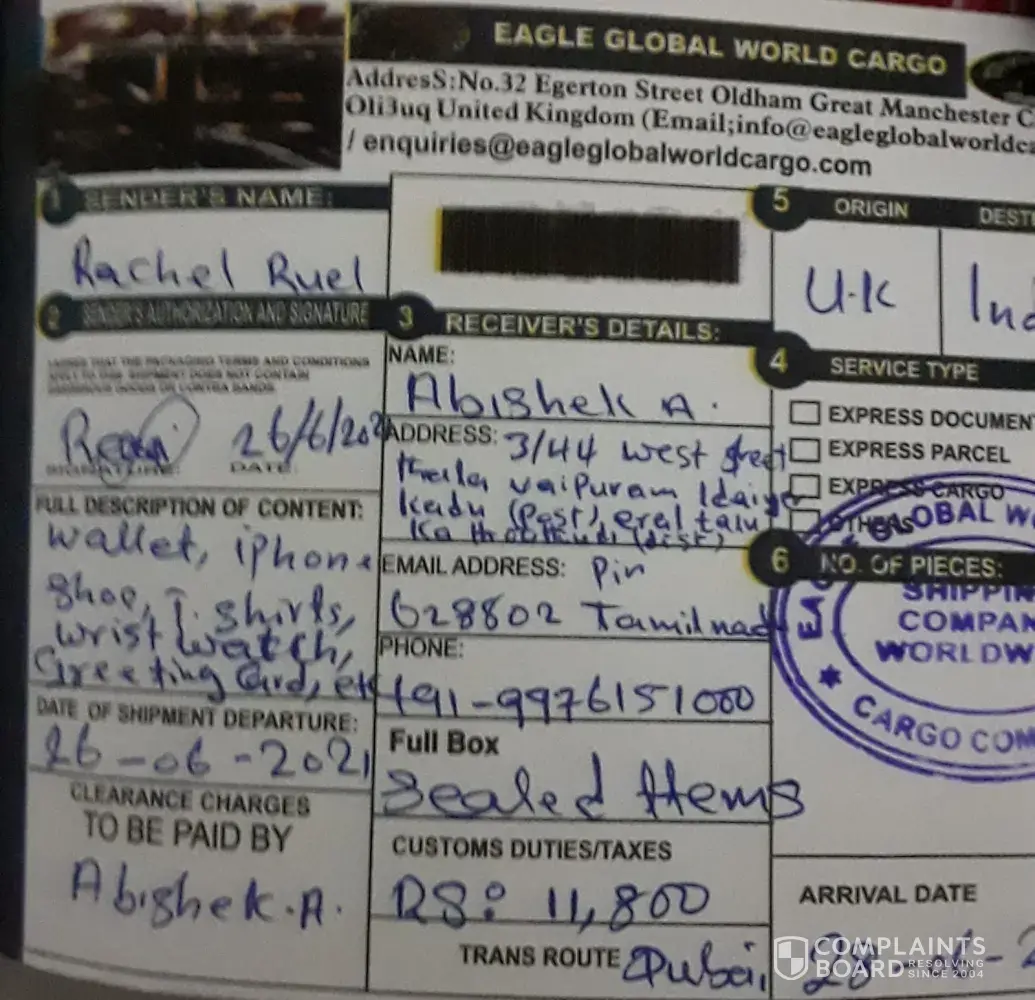 EAGLE GLOBAL WORLD CARGO
AddresS:No.32 Egerton Street Oldham Great Manchester
Oli3uq United Kingdom (Email;info@eagleglobalworldca
/ enquiries@eagleglobalworldcargo.com
1 SENDER'S NAME:
Rachel Ruel
2 SENDER'S AUTHORIZATION AND SIGNATURE
26/6/202
SIGNATURE: DATE:
FULL DESCRIPTION OF CONTENT:
wallet, iphone
shoe, T. shirts,
wrist watch,
Greeting Card, etc
DATE OF SHIPMENT DEPARTURE:
26-06-2021
CLEARANCE CHARGES
TO BE PAID BY
Abishek.A.
3 RECEIVER'S DETAILS:
NAME:
Abishek A.
ADDRESS: 3/44 west street
vaipuram Idaiye
kadu (Post), eral talu
(dist),
EMAIL ADDRESS: Pin
628802 Tamilnadu
PHONE:
+91-9976151000
Full Box
Sealed Items
CUSTOMS DUTIES/TAXES
RS: 11,800
TRANS ROUTE Dubai,
5 ORIGIN DESTI
U.K Ind
4 SERVICE TYPE
EXPRESS DOCUMEN
EXPRESS PARCEL
EXPRESS CARGO
OTHERS
6 NO. OF PIECES:
OBAL W
SHIPPIN
COMPAN
WORLDW
CARGO COM
ARRIVAL DATE
COMPLAINTS
BOARD RESOLVING
SINCE 2004